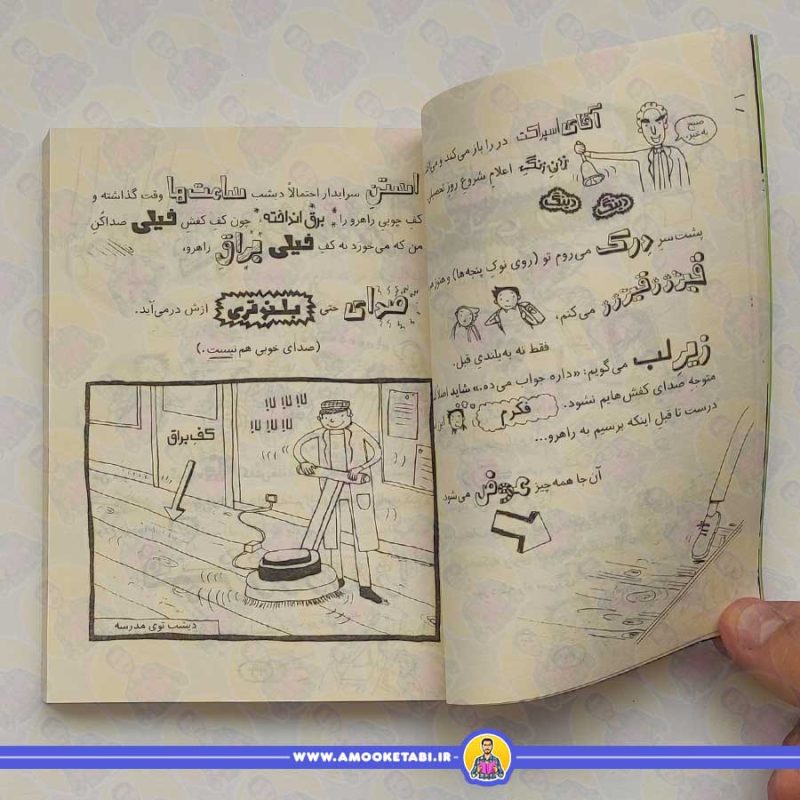 آقای اسپراکت در را باز می‌کند و
زنِ زنگ اعلام شروع روز
صبح به‌خیر.
دینگ دینگ
پشت سر دِرِک می‌روم تو (روی نوک پنجه‌ها) و هنوز
قیژژژ قیژژژ می‌کنم،
فقط نه به بلندیِ قبل.
زیر لب می‌گویم: «داره جواب می‌ده.» شاید
متوجه صدای کفش‌هایم نشود.
فکرم
درست تا قبلِ اینکه برسیم به راهرو...
آن‌جا همه چیز عوض می‌شود
استنِ سرایدار احتمالاً دیشب ساعت‌ها وقت گذاشته و
کف چوبی راهرو را برق انداخته، چون کف کفش خیلی صداکُنِ
من که می‌خورد به کفِ خیلی بَراقِ راهرو،
صدای حتی بلندتری ازش درمی‌آید.
(صدای خوبی هم نیست.)
لا! لا! لا!
لا! لا! لا!
کف براق
دیشب توی مدرسه
WWW.AMOOKETABI.IR